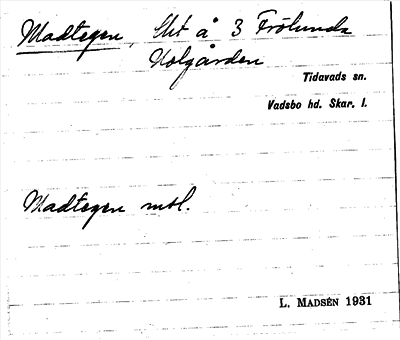 Madtegen, Slät å 3 Frölunda
Holgården
Tidavads sn.
Vadsbo hd. Skar. l.
Madtegen mbl.
L. MADSÉN 1931